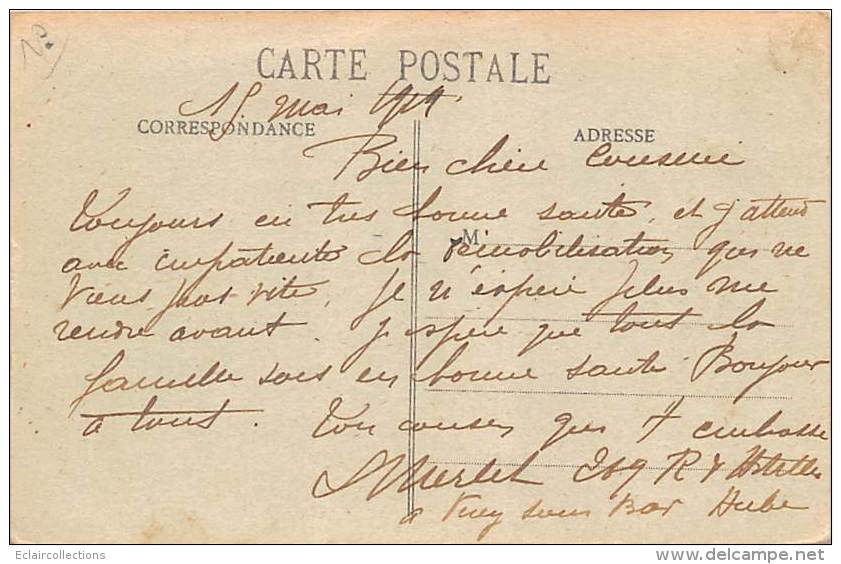 CARTE POSTALE
15 Mai 1919
CORRESPONDANCE
ADRESSE
Bien chère Cousine
Toujours en tres bonne sante, et j'attend
M
avec impatiente la démobilisation que ne
viens pas vite, Je n'espere plus me
rendre avant. J'espere que tout la
famille sois en bonne sante Bonjour
a tous. Ton cousin qui t'embrasse
Merlet 269 R
a sous Bar Aube
Eclaircollections
delcampe.net